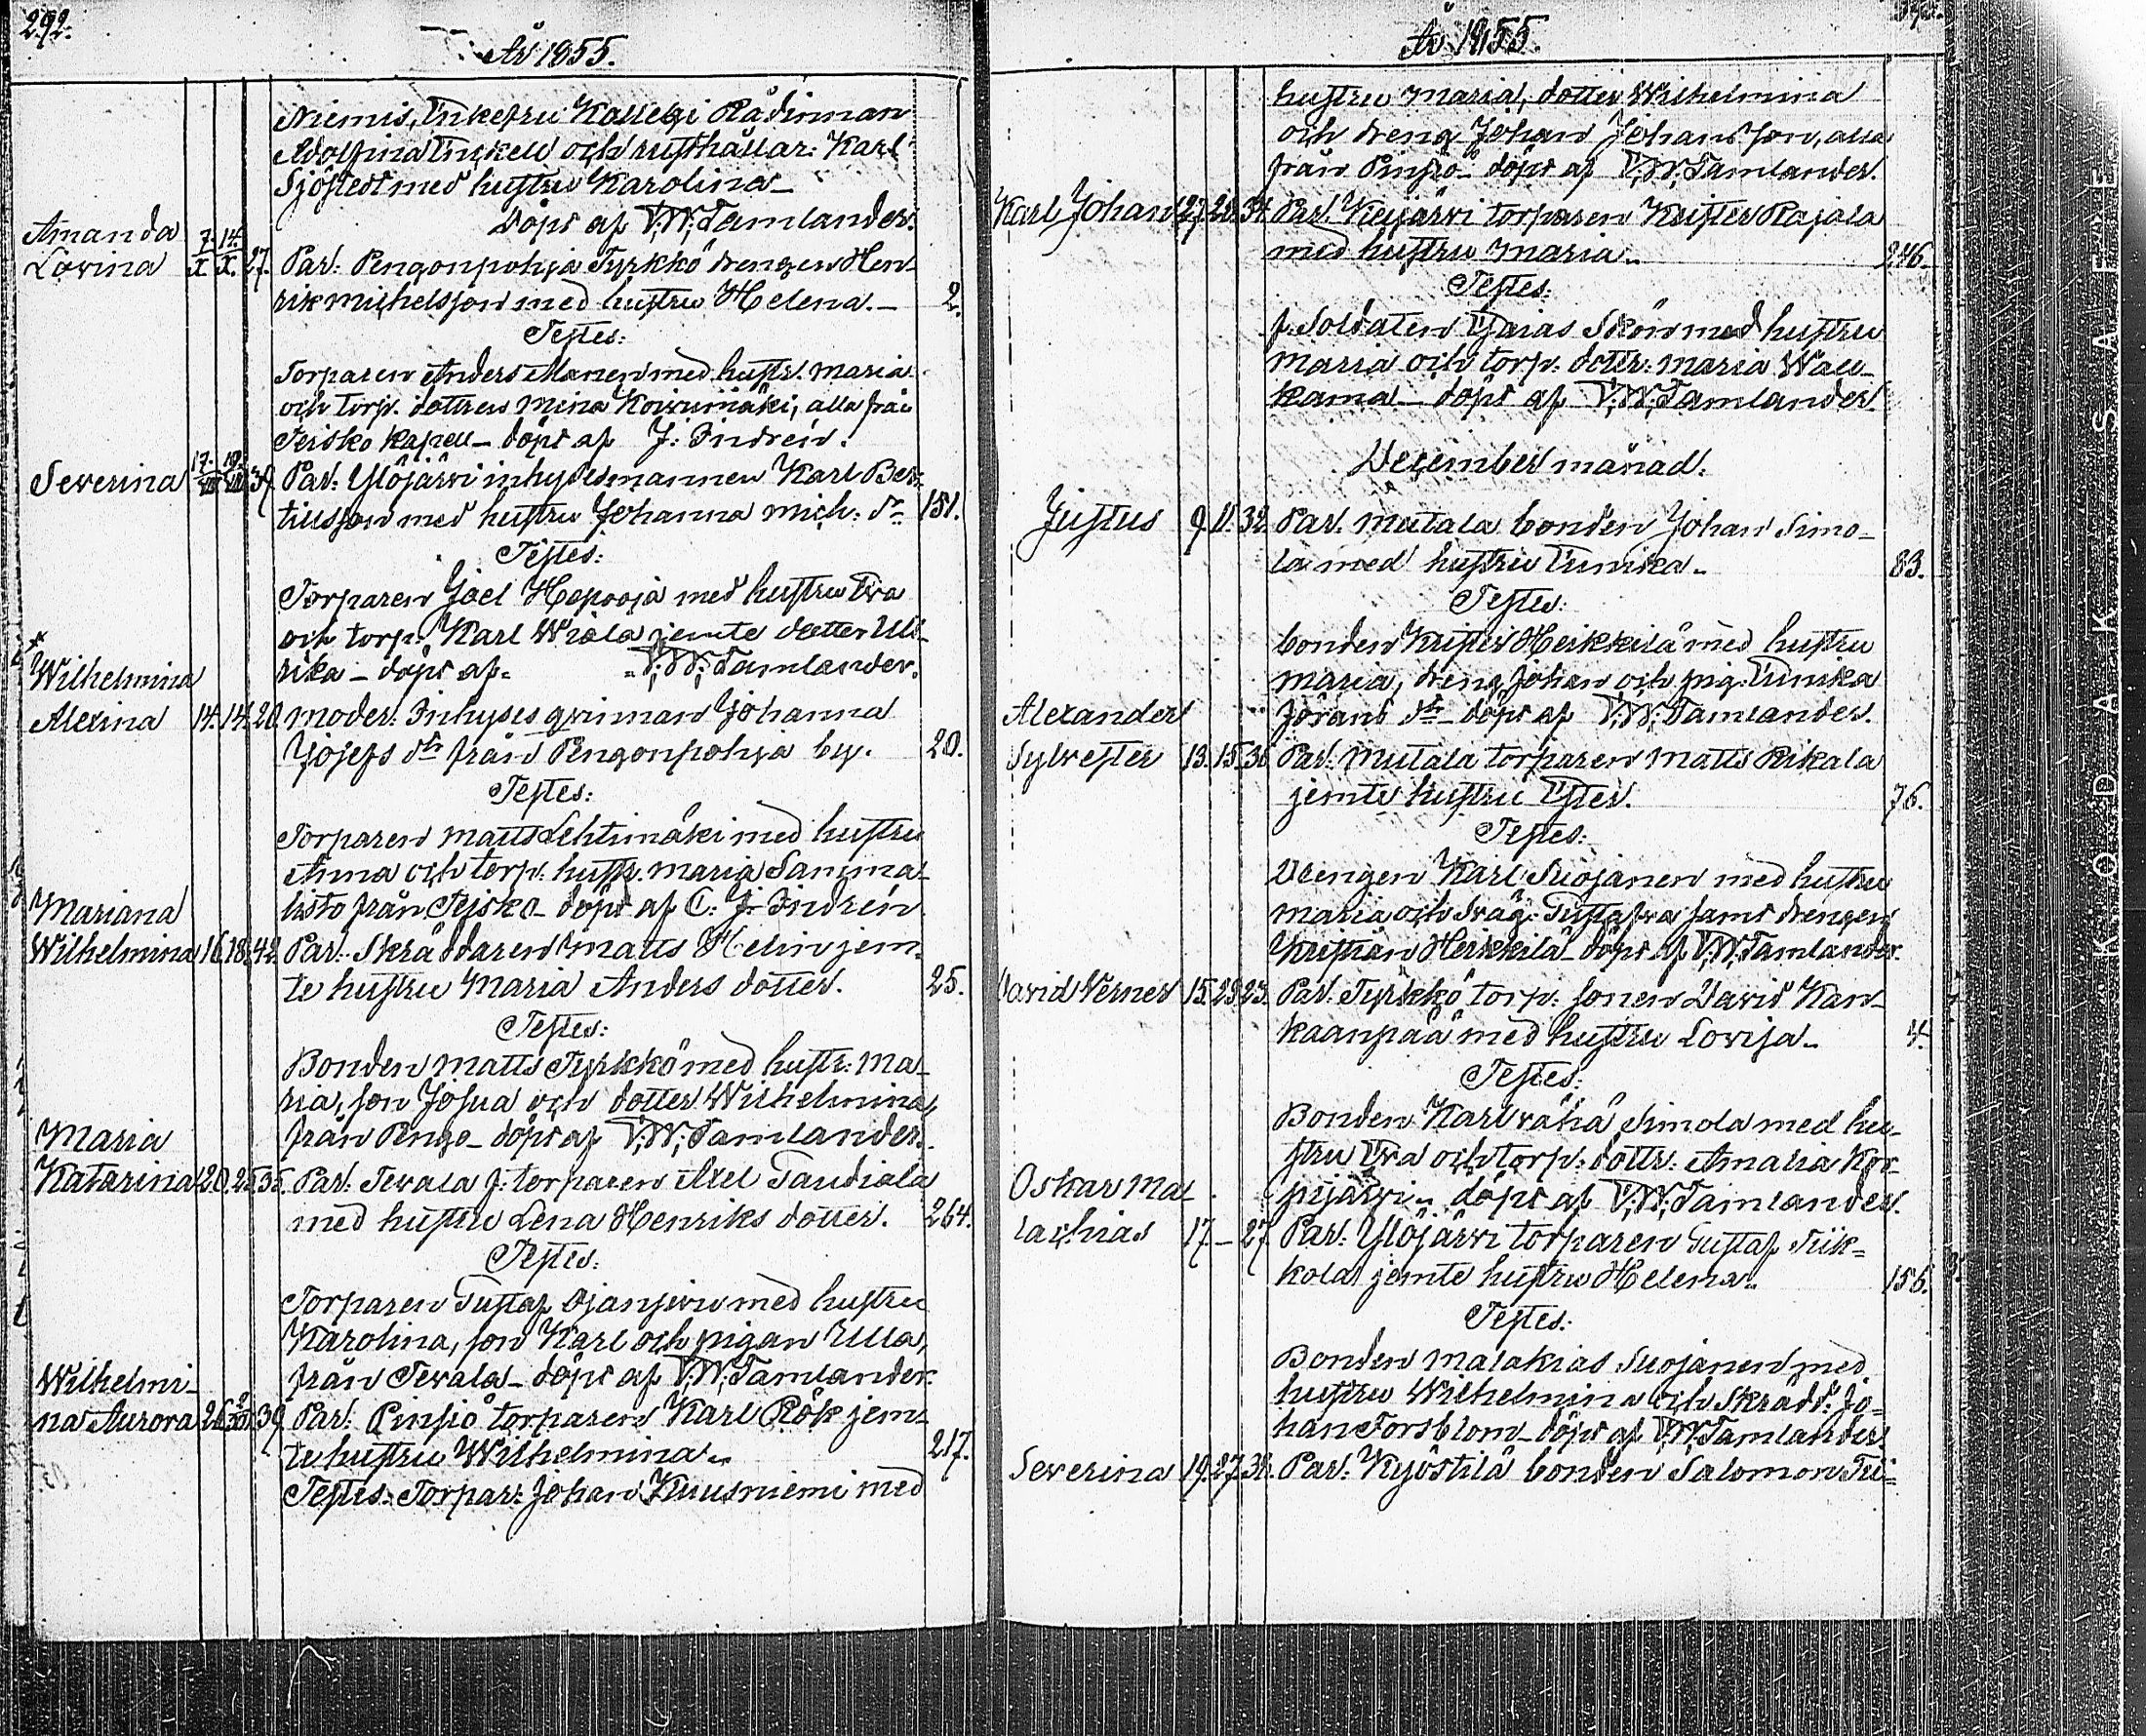 292.
År 1855.
Niemis, Enkefru Kollegi Rådinnan
Adolfina Enkell och rusthållar: Karl
Sjöstedt med hustru Karolina_
Döpt af V; W; Tamlander.
Amanda
Lovina 7/X. 14./X. 27. Par: Pengonpohja Tyrkkö drengen Hen-
rik Michelsson med hustru Helena._ 2.
Testes:
Torparen Anders Manen med hustr. Maria
och torp. dottren Mina Koivumäki, alla från
Teisko Kapell_ döpt af J: Indrén.
Severina 17. 19. 37. Par: Ylöjärvi inhysesmannen Karl Ber-
tilsson med hustru Johanna Mich: dr 151.
Testes:
Torparen Joel Hapooja med hustru Eva
och torp: Karl Wiola jemte dotter Ul-
rika _ döpt af V; W; Tamlander.
Wilhelmina
Alexina 14. 14. 20. Moder: Inhyses qvinnan Johanna
Josefs dtr från Pengonpohja by. 20.
Testes:
Torparen Matts Lehtimäki med hustru
Anna och torp: hustr. Maria Samma-
listo från Teisko_ döpt af C: J: Indrén
Mariana
Wilhelmina 16. 18. 42. Par: Skräddaren Matts Helin jem-
te hustru Maria Anders dotter. 25.
Testes:
Bonden Matts Tyrkkö med hustr: Ma-
ria, son Josua och dotter Wilhelmina,
från Pengo_ döpt af V; W; Tamlander.
Maria
Katarina 20. 25. 35. Par: Tevala f: torparen Axel Tandiala
med hustru Lena Henriks dotter. 264.
Testes:
Torparen Gustaf Ojansivu med hustru
Karolina, son Karl och pigan Ulla,
från Tevala_ döpt af V; W; Tamlander.
Wilhelmi-
na Aurora 26. 2/XII. 39. Par: Pinsiö torparen Karl Rök jem-
te hustru Wilhelmina.. 217.
Testes: Torpar: Johan Kuusniemi med
År 1855.
hustru Maria, dotter Wilhelmina
och dreng Johan Johansson, alla
från Pinsiö_ döpt af V; W; Tamlander.
Karl Johan 27. 28. 34. Par: Keijärvi torparen Krister Rajala
med hustru Maria.. 246.
Testes:
f: Soldaten Esaias Skön med hustru
Maria och torp. dotter: Maria Wau-
kama_ döpt af V; W; Tamlander.
December månad.
Justus 9. 11. 32. Par. Mutala bonden Johan Simo-
la med hustru Eunika.. 83.
Testes:
bonden Krister Heikkilä med hustru
Maria, dreng Johan och pig: Eunika
Jörans dtr_ döpt af V; W; Tamlander.
Alexander
Sylvester 13. 15. 36. Par: Mutala torparen Matts Rikala
jemte hustru Ester. 76.
Testes:
Drengen Karl Suojanen med hustru
Maria och dräg: Gustafva samt drengen
Kristian Heikkilä_ döpt af V; W; Tamlander.
David Verner 15. 23. 23. Par: Tyrkkö torp: sonen David Kan-
kaanpää med hustru Lovisa.. 4.
Testes:
Bonden Karl vähä Simola med hu-
stru Eva och torp: dottr: Amalia Kor-
pijärvi.. döpt af V; W; Tamlander.
Oskar Ma-
lachias 17. _ 27. Par: Ylöjärvi torparen Gustaf Tiik-
kola jemte hustru Helena.. 156.
Testes:
Bonden Malakias Suojanen med
hustru Wilhelmina och Skrädd: Jo-
han Forsblom_ döpt af V; W; Tamlander.
Severina 19. 27. 38. Par: Kyöstilä bonden Salomon Tu-
K O D A K S A F E